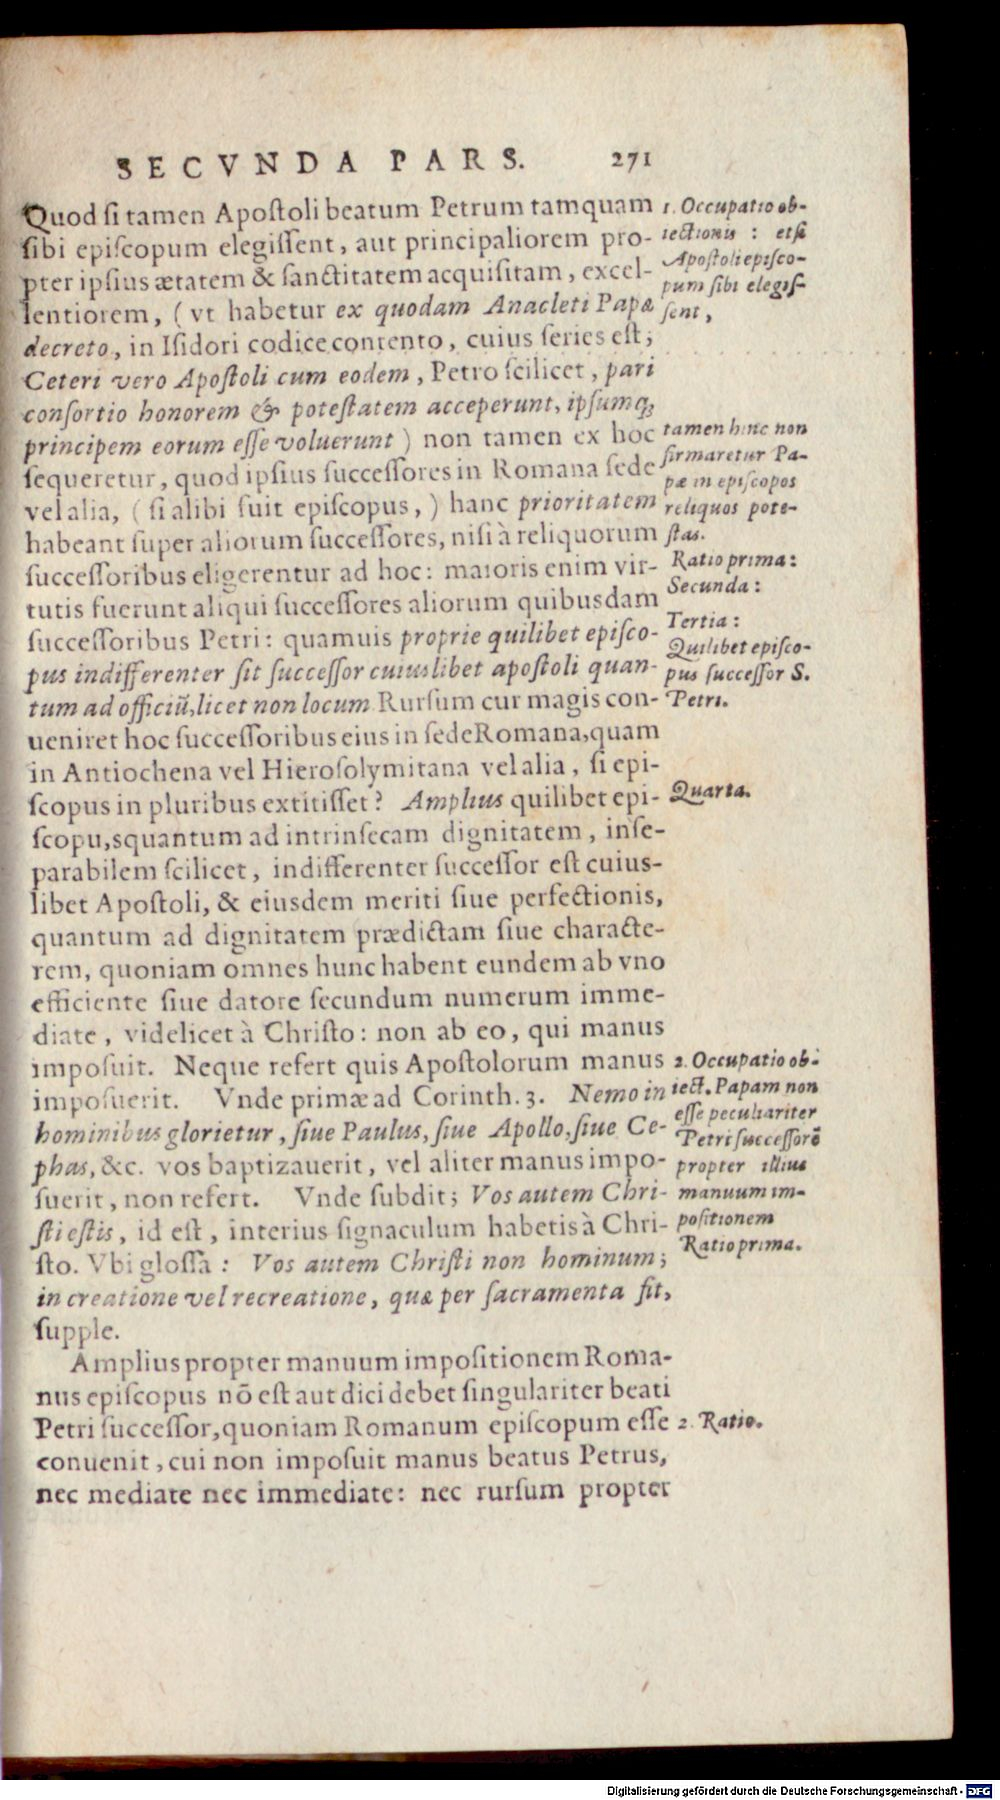 SECVNDA PARS. 271
Quod si tamen Apostoli beatum Petrum tamquam
sibi episcopum elegissent, aut principaliorem pro-
pter ipsius ætatem & sanctitatem acquisitam, excel-
lentiorem, (vt habetur ex quodam Anacleti Papæ
decreto, in Isidori codice contento, cuius series est;
Ceteri vero Apostoli cum eodem, Petro scilicet, pari
consortio honorem & potestatem acceperunt, ipsumq;
principem eorum esse voluerunt) non tamen ex hoc
sequeretur, quod ipsius successores in Romana sede
vel alia, (si alibi fuit episcopus,) hanc prioritatem
habeant super aliorum successores, nisi à reliquorum
successoribus eligerentur ad hoc: maioris enim vir-
tutis fuerunt aliqui successores aliorum quibusdam
successoribus Petri: quamuis proprie quilibet episco-
pus indifferenter sit successor cuiuslibet apostoli quan-
tum ad officiũ, licet non locum Rursum cur magis con-
ueniret hoc successoribus eius in sede Romana, quam
in Antiochena vel Hierosolymitana vel alia, si epi-
scopus in pluribus extitisset? Amplius quilibet epi-
scopu,squantum ad intrinsecam dignitatem, inse-
parabilem scilicet, indifferenter successor est cuius-
libet Apostoli, & eiusdem meriti siue perfectionis,
quantum ad dignitatem prædictam siue characte-
rem, quoniam omnes hunc habent eundem ab vno
efficiente siue datore secundum numerum imme-
diate, videlicet à Christo: non ab eo, qui manus
imposuit. Neque refert quis Apostolorum manus
imposuerit. Vnde primæ ad Corinth. 3. Nemo in
hominibus glorietur, siue Paulus, siue Apollo, siue Ce-
phas, &c. vos baptizauerit, vel aliter manus impo-
suerit, non refert. Vnde subdit; Vos autem Chri-
sti estis, id est, interius signaculum habetis à Chri-
sto. Vbi glossa: Vos autem Christi non hominum;
in creatione vel recreatione, quæ per sacramenta fit,
supple.
Amplius propter manuum impositionem Roma-
nus episcopus nõ est aut dici debet singulariter beati
Petri successor, quoniam Romanum episcopum esse
conuenit, cui non imposuit manus beatus Petrus,
nec mediate nec immediate: nec rursum propter
1. Occupatio ob-
iectionis: etsi
Apostoli episco-
pum sibi elegis-
sent,
tamen hinc non
firmaretur Pa-
pæ in episcopos
reliquos pote-
stas.
Ratio prima:
Secunda:
Tertia:
Quilibet episco-
pus successor S.
Petri.
Quarta.
2. Occupatio ob-
iect. Papam non
esse peculiariter
Petri successorẽ
propter illius
manuum im-
positionem
Ratio prima.
2. Ratio.
Digitalisierung gefördert durch die Deutsche Forschungsgemeinschaft - DFG